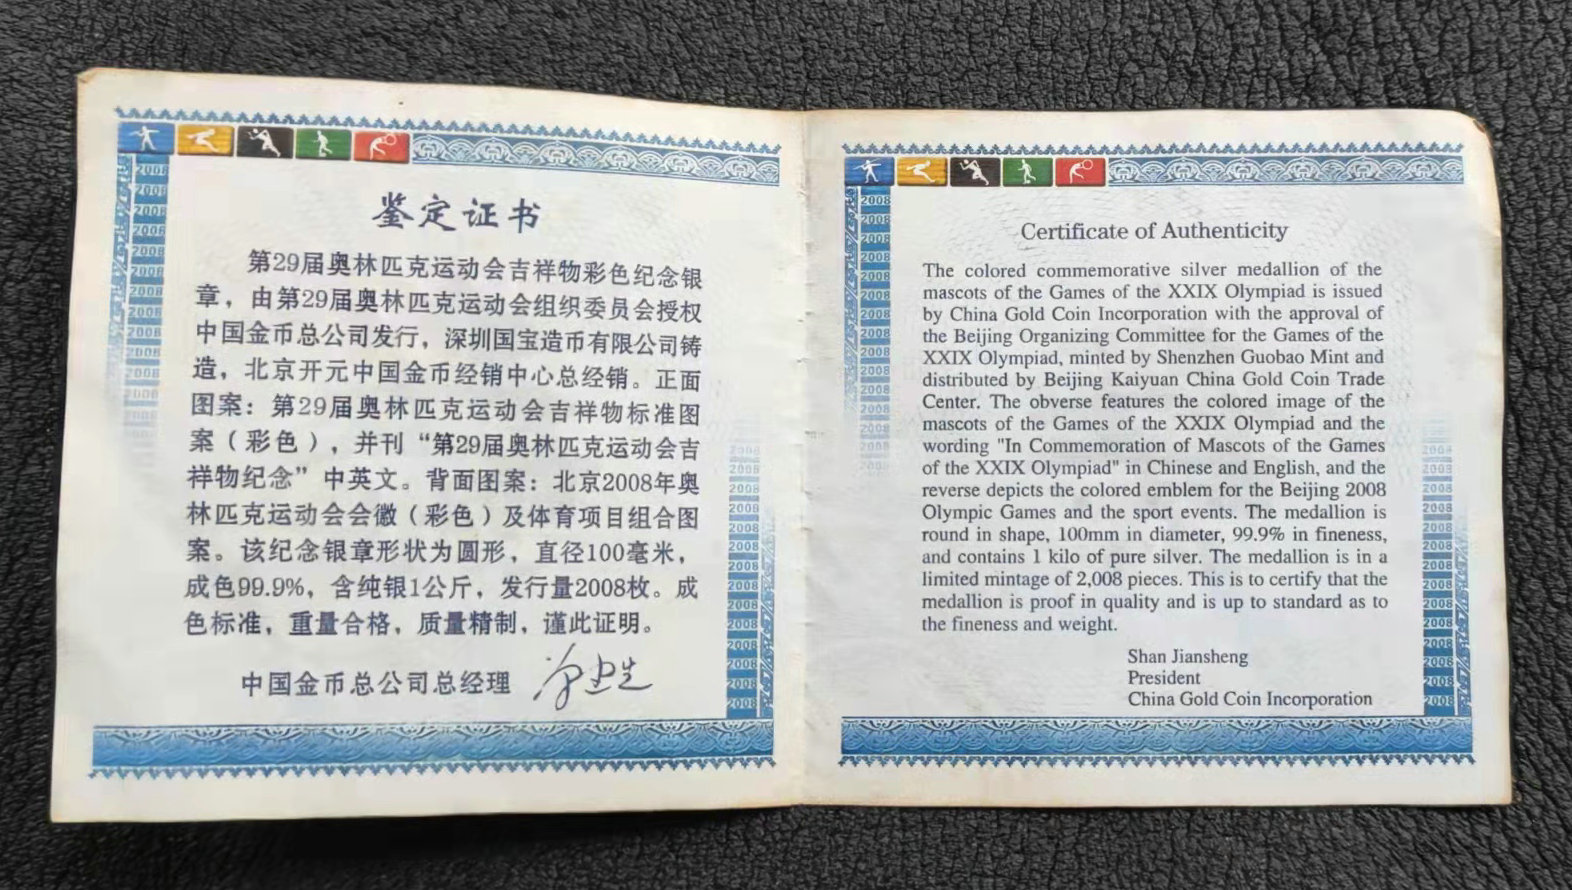 鉴定证书
第29届奥林匹克运动会吉祥物彩色纪念银
章，由第29届奥林匹克运动会组织委员会授权
中国金币总公司发行，深圳国宝造币有限公司铸
造，北京开元中国金币经销中心总经销。正面
图案：第29届奥林匹克运动会吉祥物标准图
案（彩色），并刊“第29届奥林匹克运动会吉
祥物纪念”中英文。背面图案：北京2008年奥
林匹克运动会会徽（彩色）及体育项目组合图
案。该纪念银章形状为圆形，直径100毫米，
成色99.9%，含纯银1公斤，发行量2008枚。成
色标准，重量合格，质量精制，谨此证明。
中国金币总公司总经理
Certificate of Authenticity
The colored commemorative silver medallion of the
mascots of the Games of the XXIX Olympiad is issued
by China Gold Coin Incorporation with the approval of
the Beijing Organizing Committee for the Games of the
XXIX Olympiad, minted by Shenzhen Guobao Mint and
distributed by Beijing Kaiyuan China Gold Coin Trade
Center. The obverse features the colored image of the
mascots of the Games of the XXIX Olympiad and the
wording "In Commemoration of Mascots of the Games
of the XXIX Olympiad" in Chinese and English, and the
reverse depicts the colored emblem for the Beijing 2008
Olympic Games and the sport events. The medallion is
round in shape, 100mm in diameter, 99.9% in fineness,
and contains 1 kilo of pure silver. The medallion is in a
limited mintage of 2,008 pieces. This is to certify that the
medallion is proof in quality and is up to standard as to
the fineness and weight.
Shan Jiansheng
President
China Gold Coin Incorporation